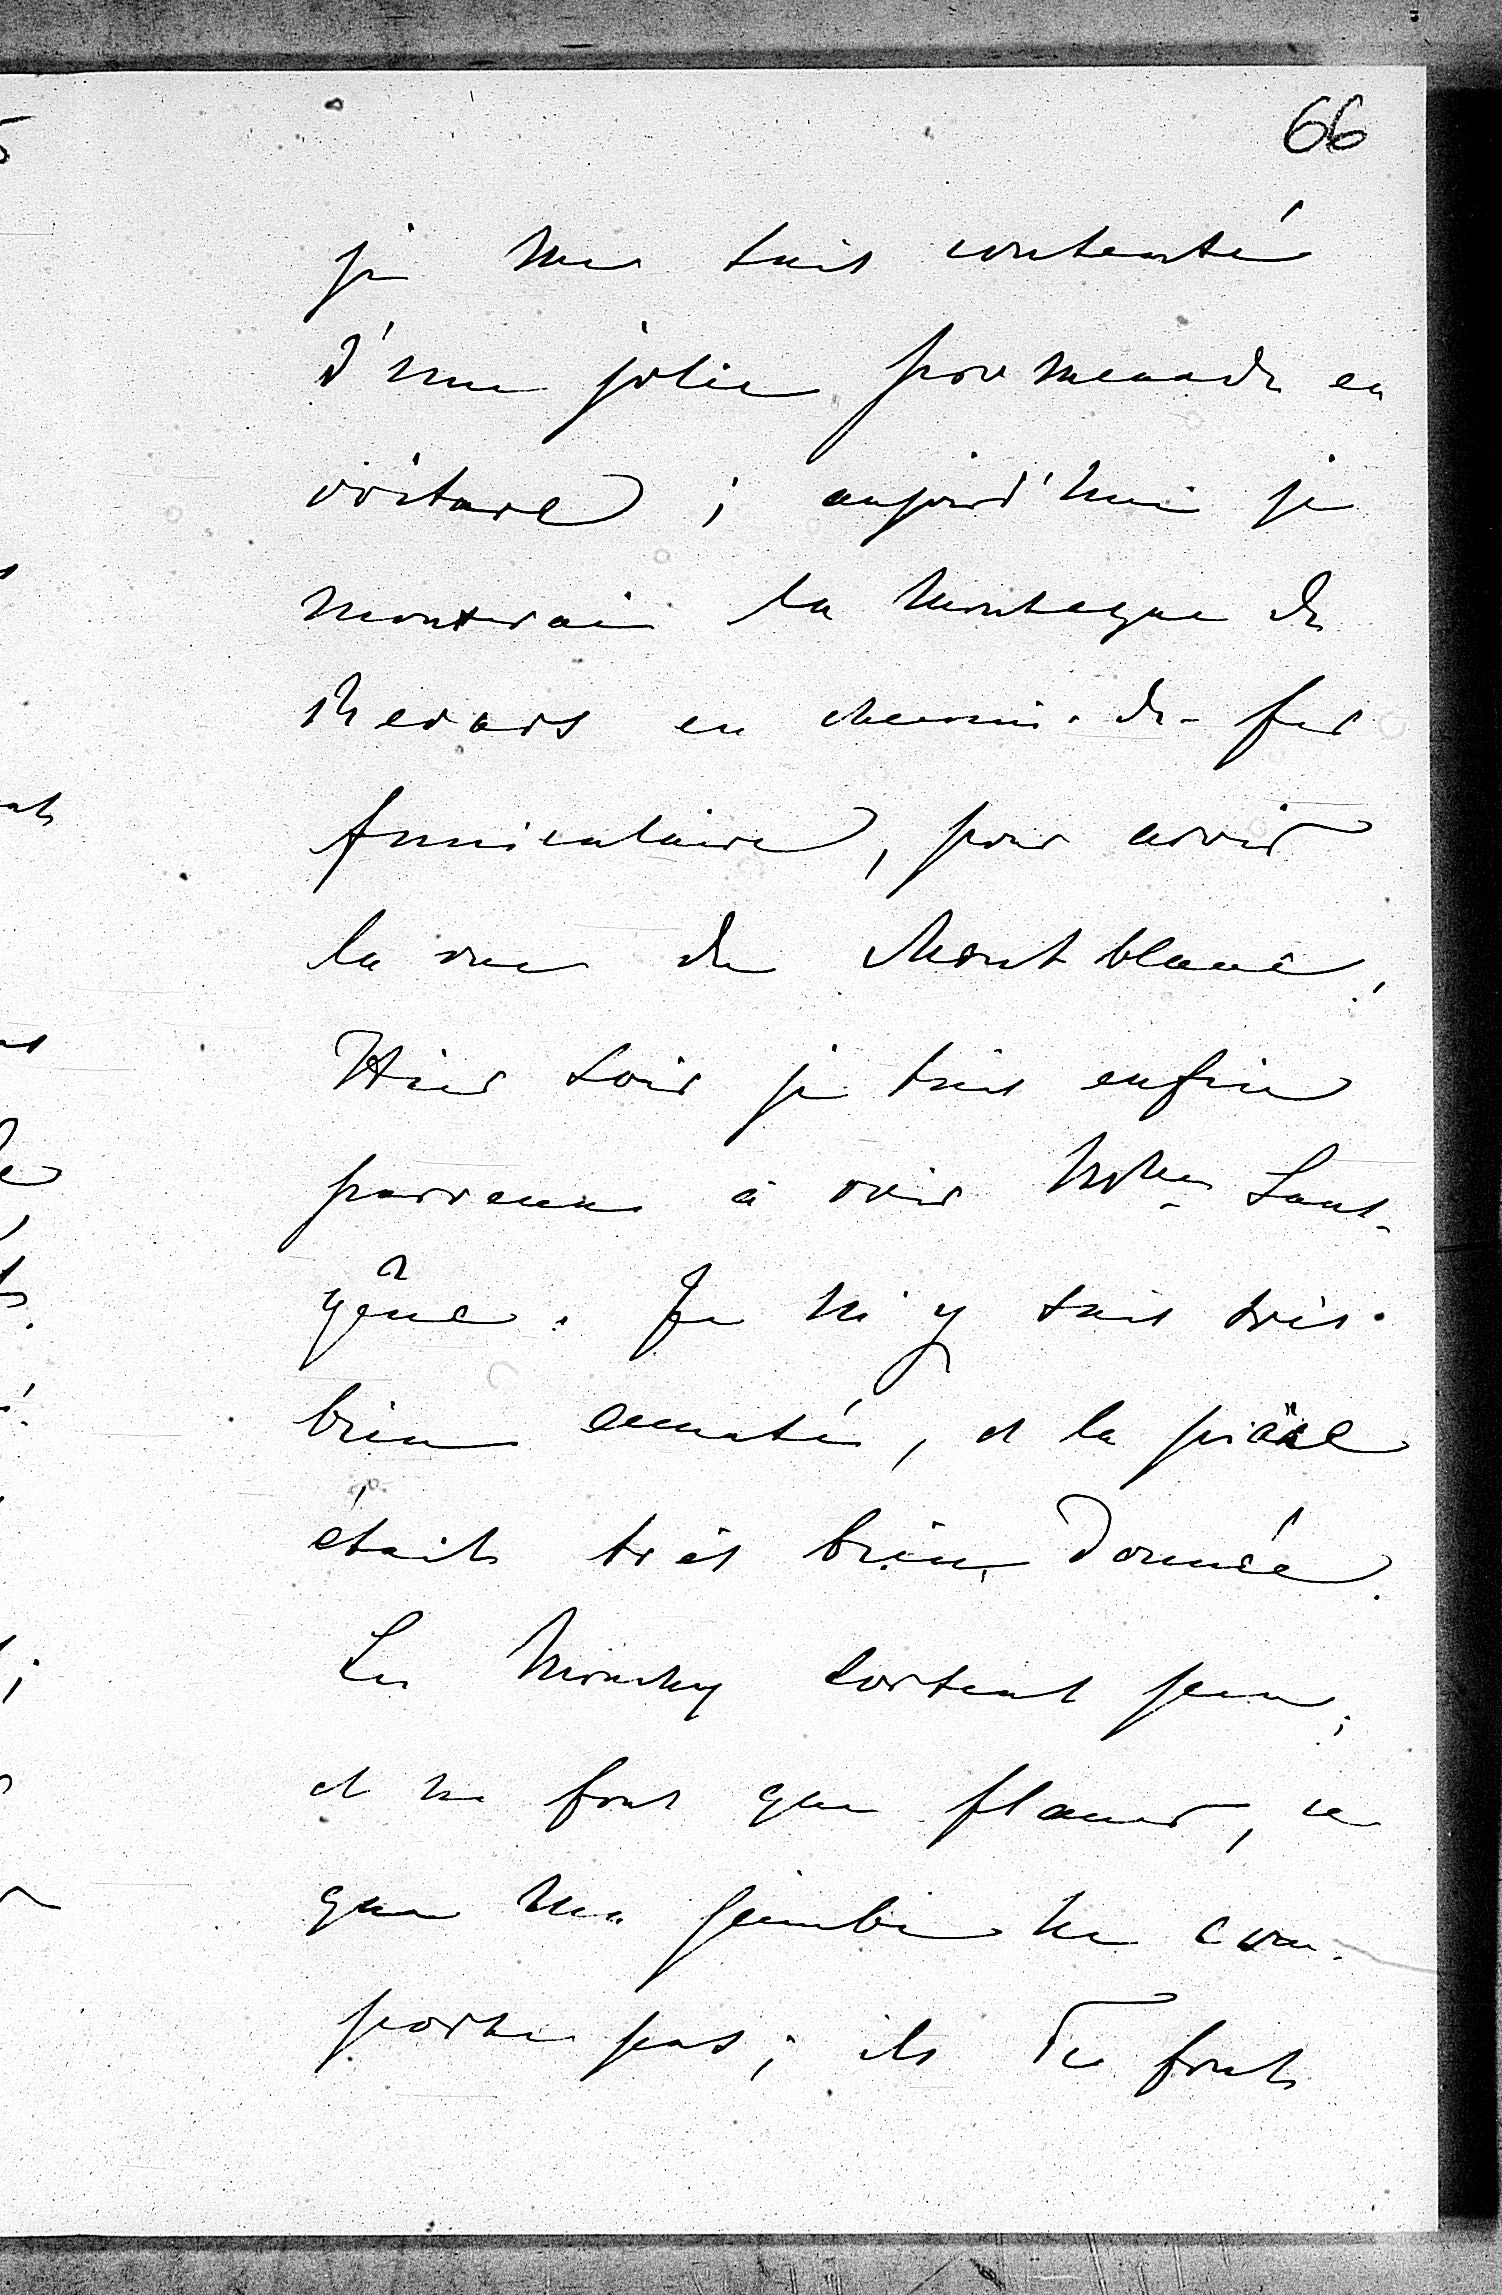 66
je me suis contenté
d'une jolie promenade en
voiture ; aujourd'hui je
monterai la montagne de
Revars en chemin-de-fer
funiculaire, pour avoir
la vue du Mont blanc.
Hier soir je suis enfin
parvenu à voir Mme Sans-
gêne. Je m'y suis très
bien amusé, et la pièce
était très bien donnée.
Les Mouchy sortent peu,
et ne font que flaner, ce
que ma jambe ne com-
porte pas ; ils se font